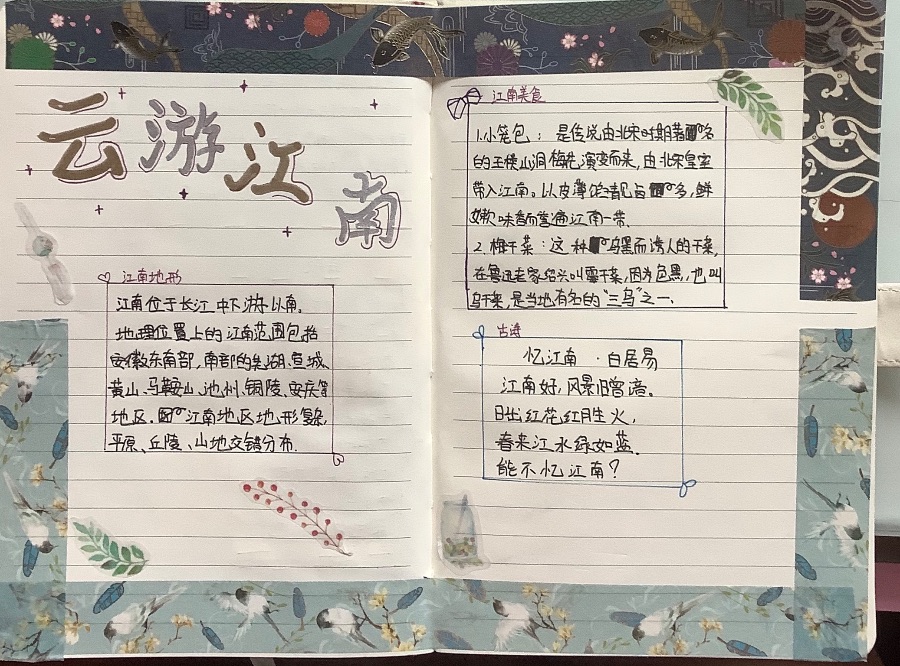 云游江南
江南地形
江南位于长江中下游以南。
地理位置上的江南范围包括
安徽东南部,南部的芜湖、宣城、
黄山、马鞍山、池州、铜陵、安庆等
地区。江南地区地形复杂,
平原、丘陵、山地交错分布.
江南美食
1.小笼包:是传说由北宋时期著名
的王楼山洞梅花演变而来,由北宋皇室
带入江南。以皮薄 多,鲜
嫩 味香而营遍江南一带.
2.梅干菜:这种乌黑而诱人的干菜,
在鲁迅老家绍兴叫霉干菜,因为色黑,也叫
乌干菜,是当地有名的“三乌”之一.
古诗
忆江南·白居易
江南好,风景旧曾谙。
日出江花红胜火,
春来江水绿如蓝.
能不忆江南?